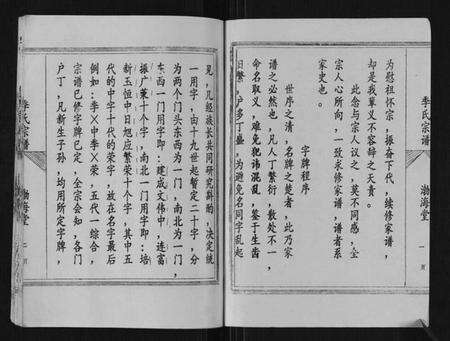 李氏宗谱
渤海堂
一页
为慰祖怀宗，振奋下代，续修家谱，
却是我辈义不容辞之天责。
此念与宗人议之，莫不同感，全
宗人心所向，一致要求修家谱，谱者系
家史也。
字牌程序
世序之清，名牌之楚者，此乃家
谱之必然也，凡人丁繁衍，散处不一，
命名取义，难免犯讳混乱，鉴于生齿
日繁，户多丁盛，为避免名同字乱起
见，几经族长共同研究斟酌，决定统
一用字，由十九世起暂定二十字，分
为两个门头东西为一门，南北为一门，
东西一门用字即：建成文伟中，连富
振广荣十个字，南北一门用字即：培
新玉恒中日旭应繁荣十个字，其中五
代的中字十代的荣字，放在名字最后
例如：李×中李×荣，五代一综合，
宗谱已修字牌已定，全宗会知，各门
户丁，凡新生子孙，均用所定字牌，
李氏宗谱
渤海堂
二页